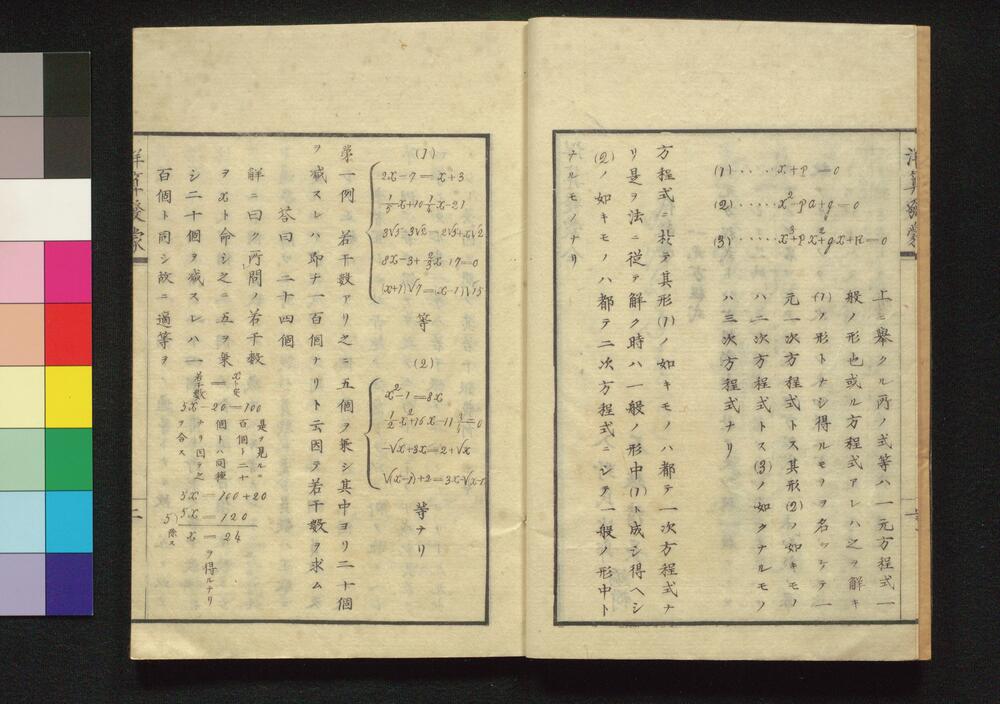 (1)‥‥‥x+p=0
(2)‥‥‥x²-px+q=0
(3)‥‥‥x³+px²+qx+r=0
上ニ擧クル所ノ式等ハ一元方程式一
般ノ形也或ル方程式アレハ之ヲ解キ
(1)ノ形トナシ得ルモノヲ名ツケテ一
元一次方程式トス其形(2)ノ如キモノ
ハ二次方程式トス(3)ノ如クナルモノ
ハ三次方程式ナリ
方程式ニ於テ其形(1)ノ如キモノハ都テ一次方程式ナ
リ是ヲ法ニ從テ解ク時ハ一般ノ形中(1)ト成シ得ヘシ
(2)ノ如キモノハ都テ二次方程式ニシテ一般ノ形中ト
ナルモノナリ
(1)
2x-7=x+3
8x-3+⅔x-17=0
(x+1)√7=(x-1)√15
等
(2)
x²-1=8x
-√x+3x=2+√x
等ナリ
第一例 若干數アリ之ニ五個ヲ乘シ其中ヨリ二十個
ヲ減スレハ即ナ一百個ナリト云因テ若干數ヲ求ムス
答曰 二十四個
解ニ曰ク所問ノ若干數
ヲxト命シ之ニ五ヲ乘
シ二十個ヲ減スレハ一
百個ト同シ故ニ適等ヲ
5x-20=100
是ヲ見ルニ
百個ト二十
個トハ同種
ナリ因テ之
ヲ合ス
5x=100+20
5)5x=120
除ス
x=24
ヲ得ルナリ
洋算發蒙
洋算發蒙